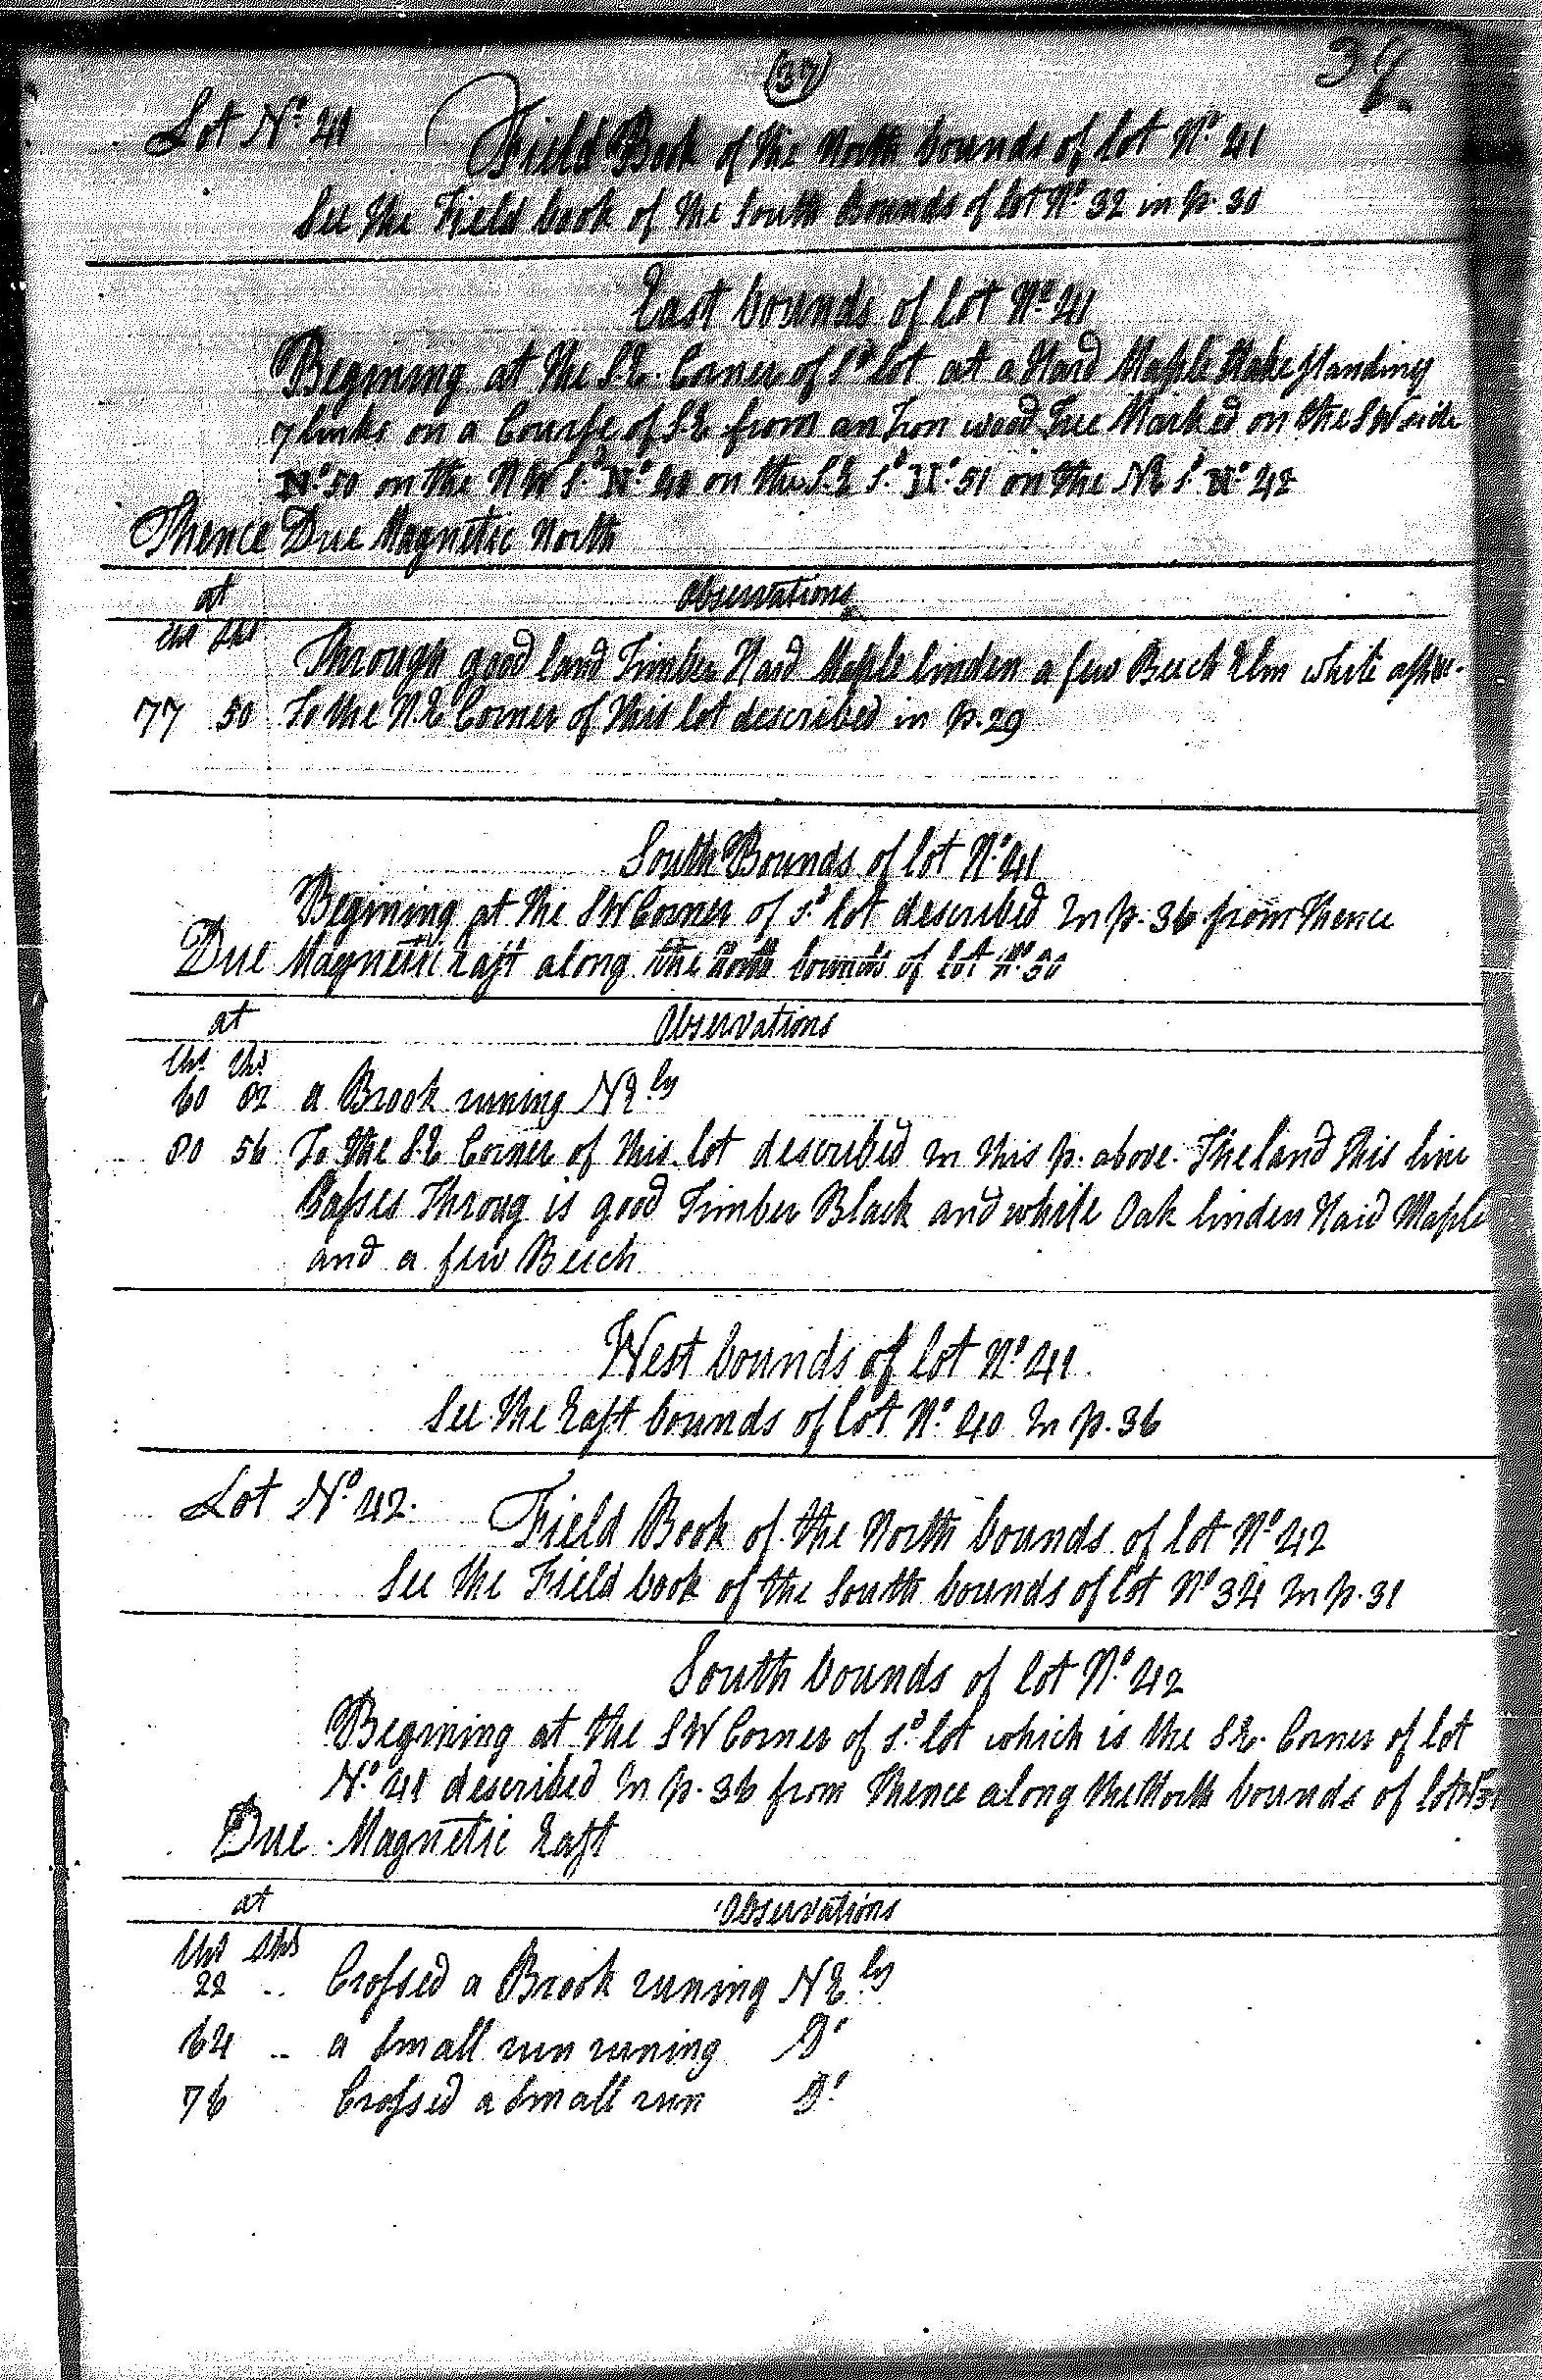 (37)
37
Lot Nº 41 Field Book of the North bounds of lot Nº 41
See the Field book of the South Bounds of lot Nº 32 in p. 30
East bounds of lot Nº 41
Begining at the S.E. Corner of sd lot at a Hard Maple Stake standing
7 links on a Course of S.E from an Iron wood Tree Marked on the SW side
Nº 50 on the NW sd Nº 41 on the S.E sd Nº 51 on the NE sd Nº 42
Thence Due Magnetic North
at Observations
Chs Lks
Through good land Timber Hard Maple linden a few Beech Elm white ash &c.
77 50 To the N.E Corner of this lot described in p. 29
South Bounds of lot Nº 41
Begining at the SW Corner of sd lot described In p. 36 from Thence
Due Magnetic East along the North bounds of lot Nº 50
at Observations
Chs Lks
60 82 a Brook runing NEly
80 56 To the S.E Corner of this lot described in this p. above. The land this line
Passes Throug is good Timber Black and white Oak linden Hard Maple
and a few Beech
West bounds of lot Nº 41.
See the East bounds of lot Nº 40 In p. 36
Lot Nº 42. Field Book of the North bounds of lot Nº 42
See the Field book of the South bounds of lot Nº 34 In p. 31
South bounds of lot Nº 42
Begining at the SW Corner of sd lot which is the S.E. Corner of lot
Nº 41 described In p. 36 from Thence along the North bounds of lot
Due Magnetic East
at Observations
Chs Lks
22 .. Crossed a Brook runing NEly
64 .. a Small run runing Dº
76 Crossed a Small run Dº